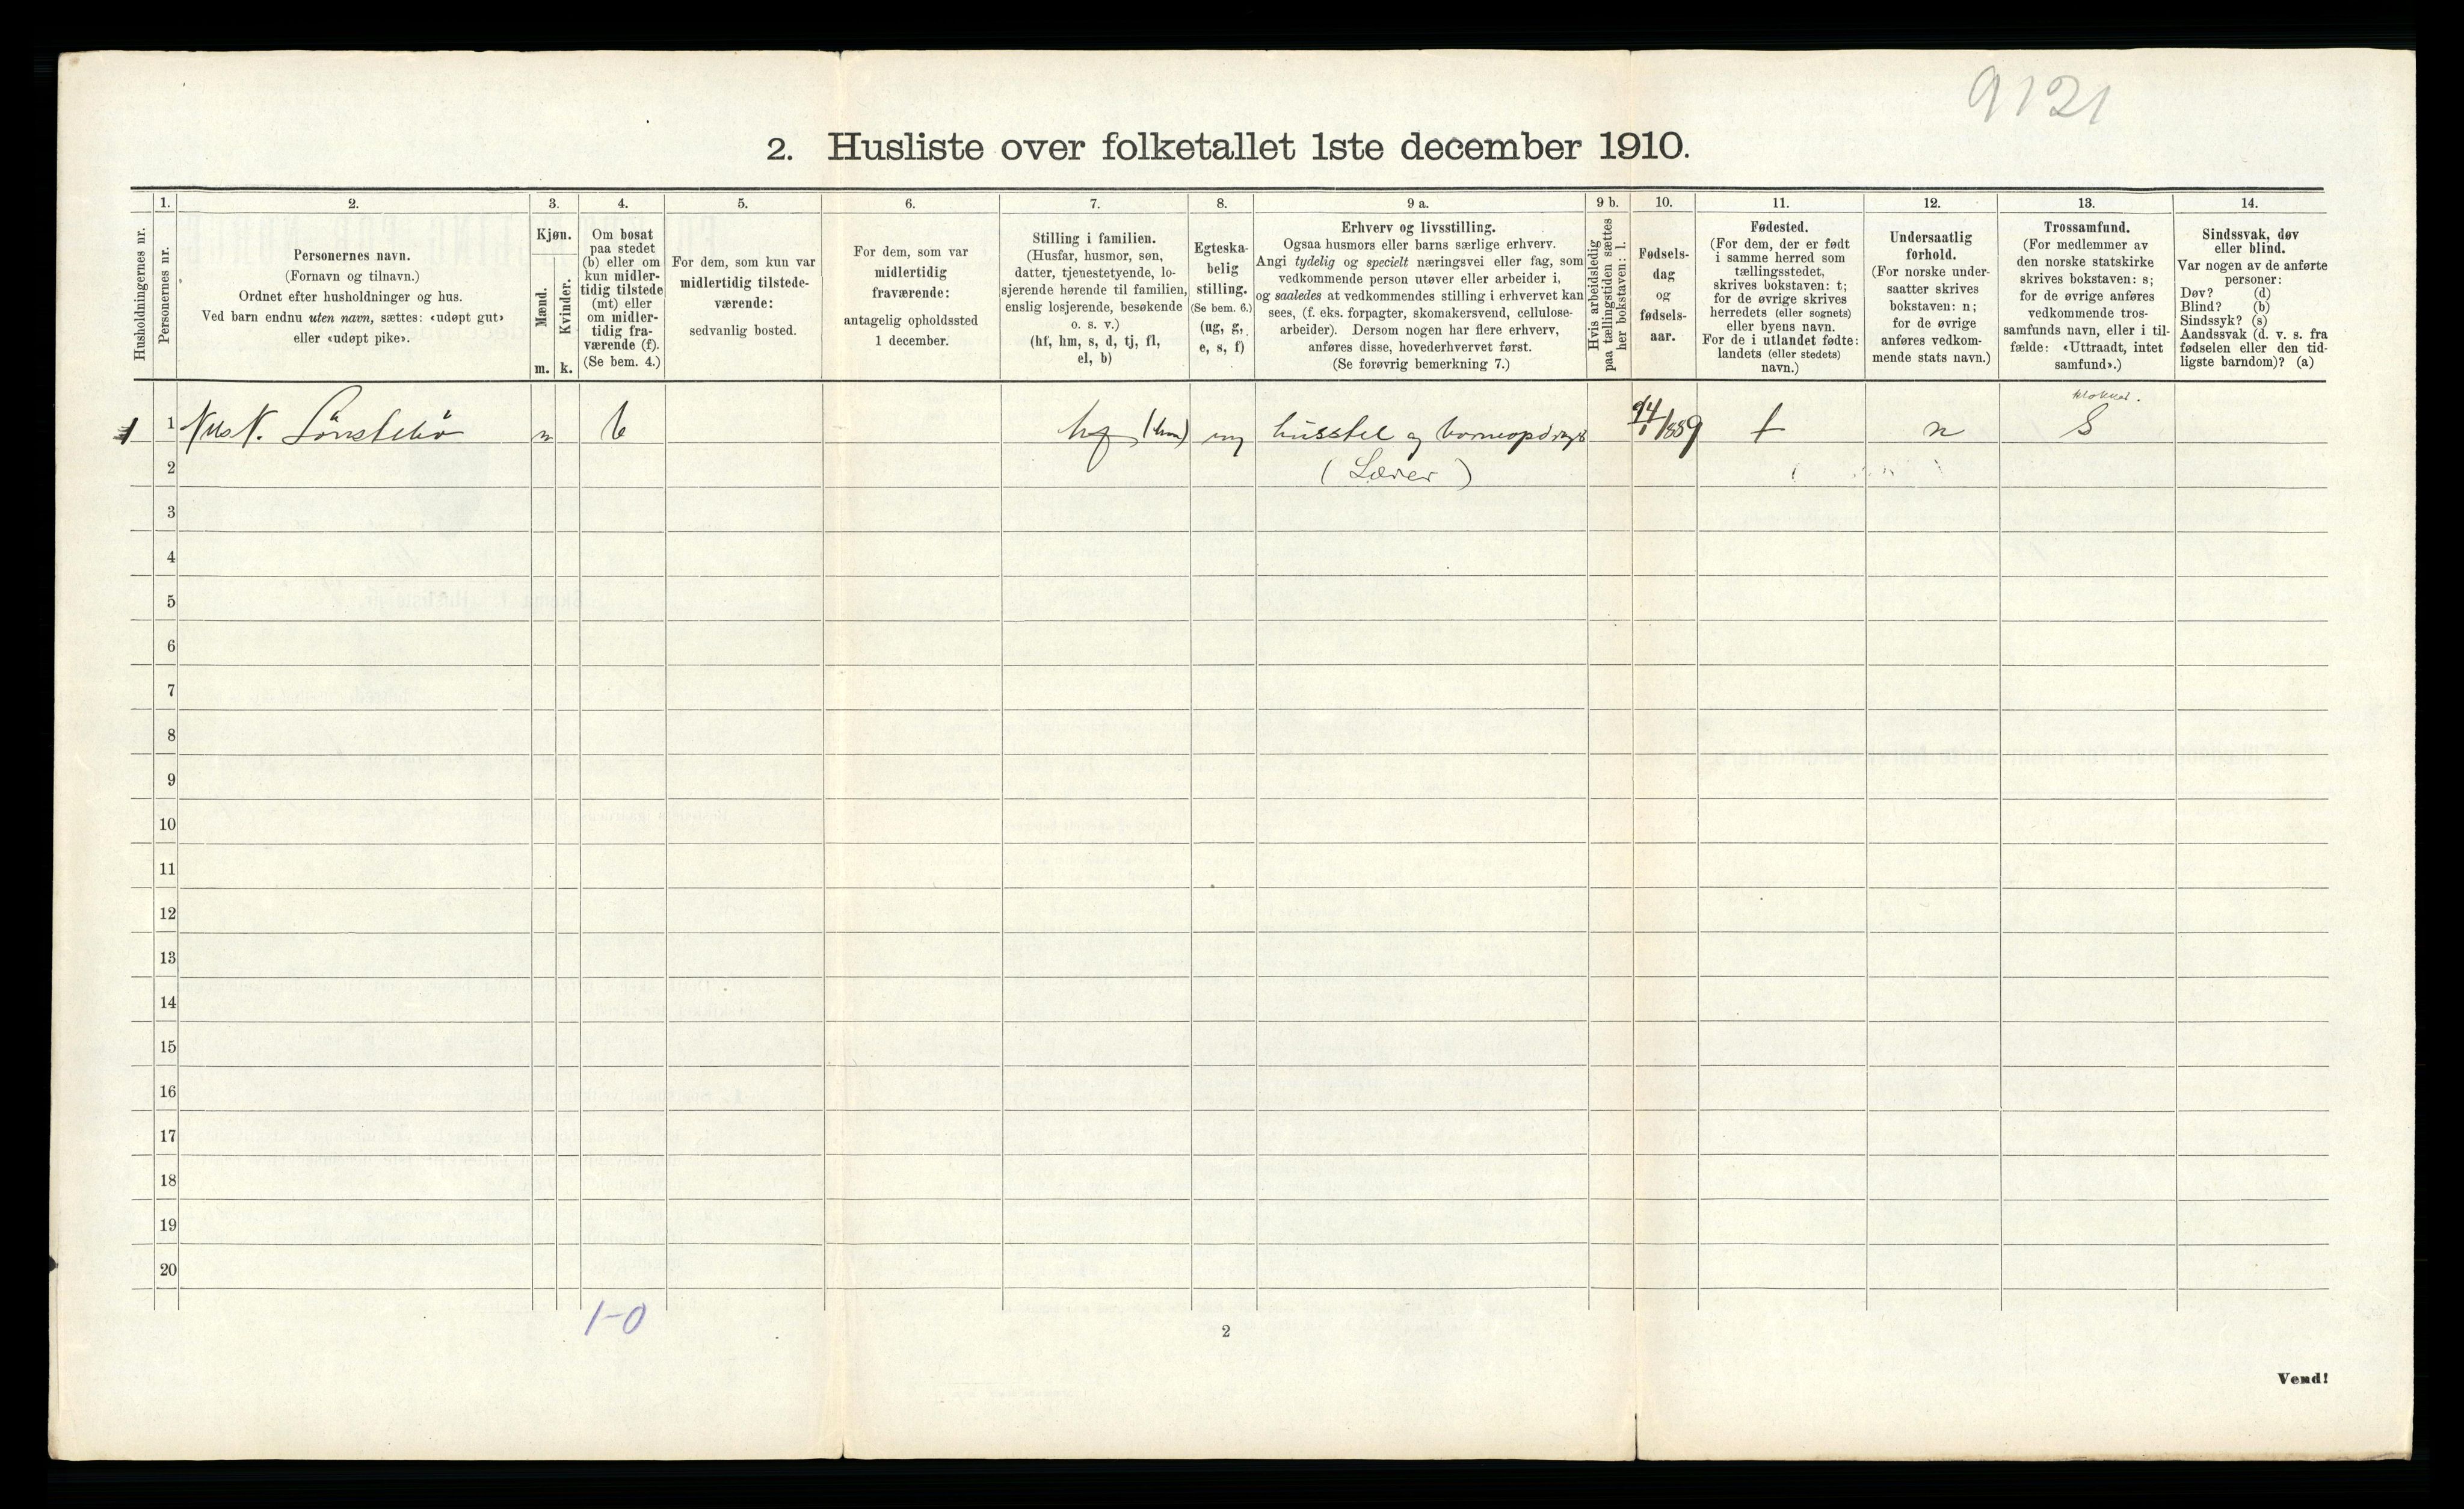 9121
2. Husliste over folketallet 1ste december 1910.
Husholdningernes nr.
1.
Personernes nr.
2.
Personernes navn.
(Fornavn og tilnavn.)
Ordnet efter husholdninger og hus.
Ved barn endnu uten navn, sættes: «udøpt gut»
eller «udøpt pike».
3.
Kjøn.
Mænd.
Kvinder.
m. k.
4.
Om bosat
paa stedet
(b) eller om
kun midler-
tidig tilstede
(mt) eller
om midler-
tidig fra-
værende (f).
(Se bem. 4.)
5.
For dem, som kun var
midlertidig tilstede-
værende:
sedvanlig bosted.
6.
For dem, som var
midlertidig
fraværende:
antagelig opholdssted
1 december.
7.
Stilling i familien.
(Husfar, husmor, søn,
datter, tjenestetyende, lo-
sjerende hørende til familien,
enslig losjerende, besøkende
o. s. v.)
(hf, hm, s, d, tj, fl,
el, b)
8.
Egteska-
belig
stilling.
(Se bem. 6.)
(ug, g,
e, s, f)
9 a.
Erhverv og livsstilling.
Ogsaa husmors eller barns særlige erhverv.
Angi tydelig og specielt næringsvei eller fag, som
vedkommende person utøver eller arbeider i,
og saaledes at vedkommendes stilling i erhvervet kan
sees, (f. eks. forpagter, skomakersvend, cellulose-
arbeider). Dersom nogen har flere erhverv,
anføres disse, hovederhvervet først.
(Se forøvrig bemerkning 7.)
9 b.
Hvis arbeidsledig
paa tællingstiden sættes
her bokstaven: l.
10.
Fødsels-
dag
og
fødsels-
aar.
11.
Fødested.
(For dem, der er født
i samme herred som
tællingsstedet,
skrives bokstaven: t;
for de øvrige skrives
herredets (eller sognets)
eller byens navn.
For de i utlandet fødte:
landets (eller stedets)
navn.)
12.
Undersaatlig
forhold.
(For norske under-
saatter skrives
bokstaven: n;
for de øvrige
anføres vedkom-
mende stats navn.)
13.
Trossamfund.
(For medlemmer av
den norske statskirke
skrives bokstaven: s;
for de øvrige anføres
vedkommende tros-
samfunds navn, eller i til-
fælde: «Uttraadt, intet
samfund».)
14.
Sindssvak, døv
eller blind.
Var nogen av de anførte
personer:
Døv? (d)
Blind? (b)
Sindssyk? (s)
Aandssvak (d. v. s. fra
fødselen eller den tid-
ligste barndom)? (a)
1 1 N. Sönstebö m b hf (hm) ug husstel og 1889 t n S
2 (Lærer)
3
4
5
6
7
8
9
10
11
12
13
14
15
16
17
18
19
20
1-0
2
Vend!